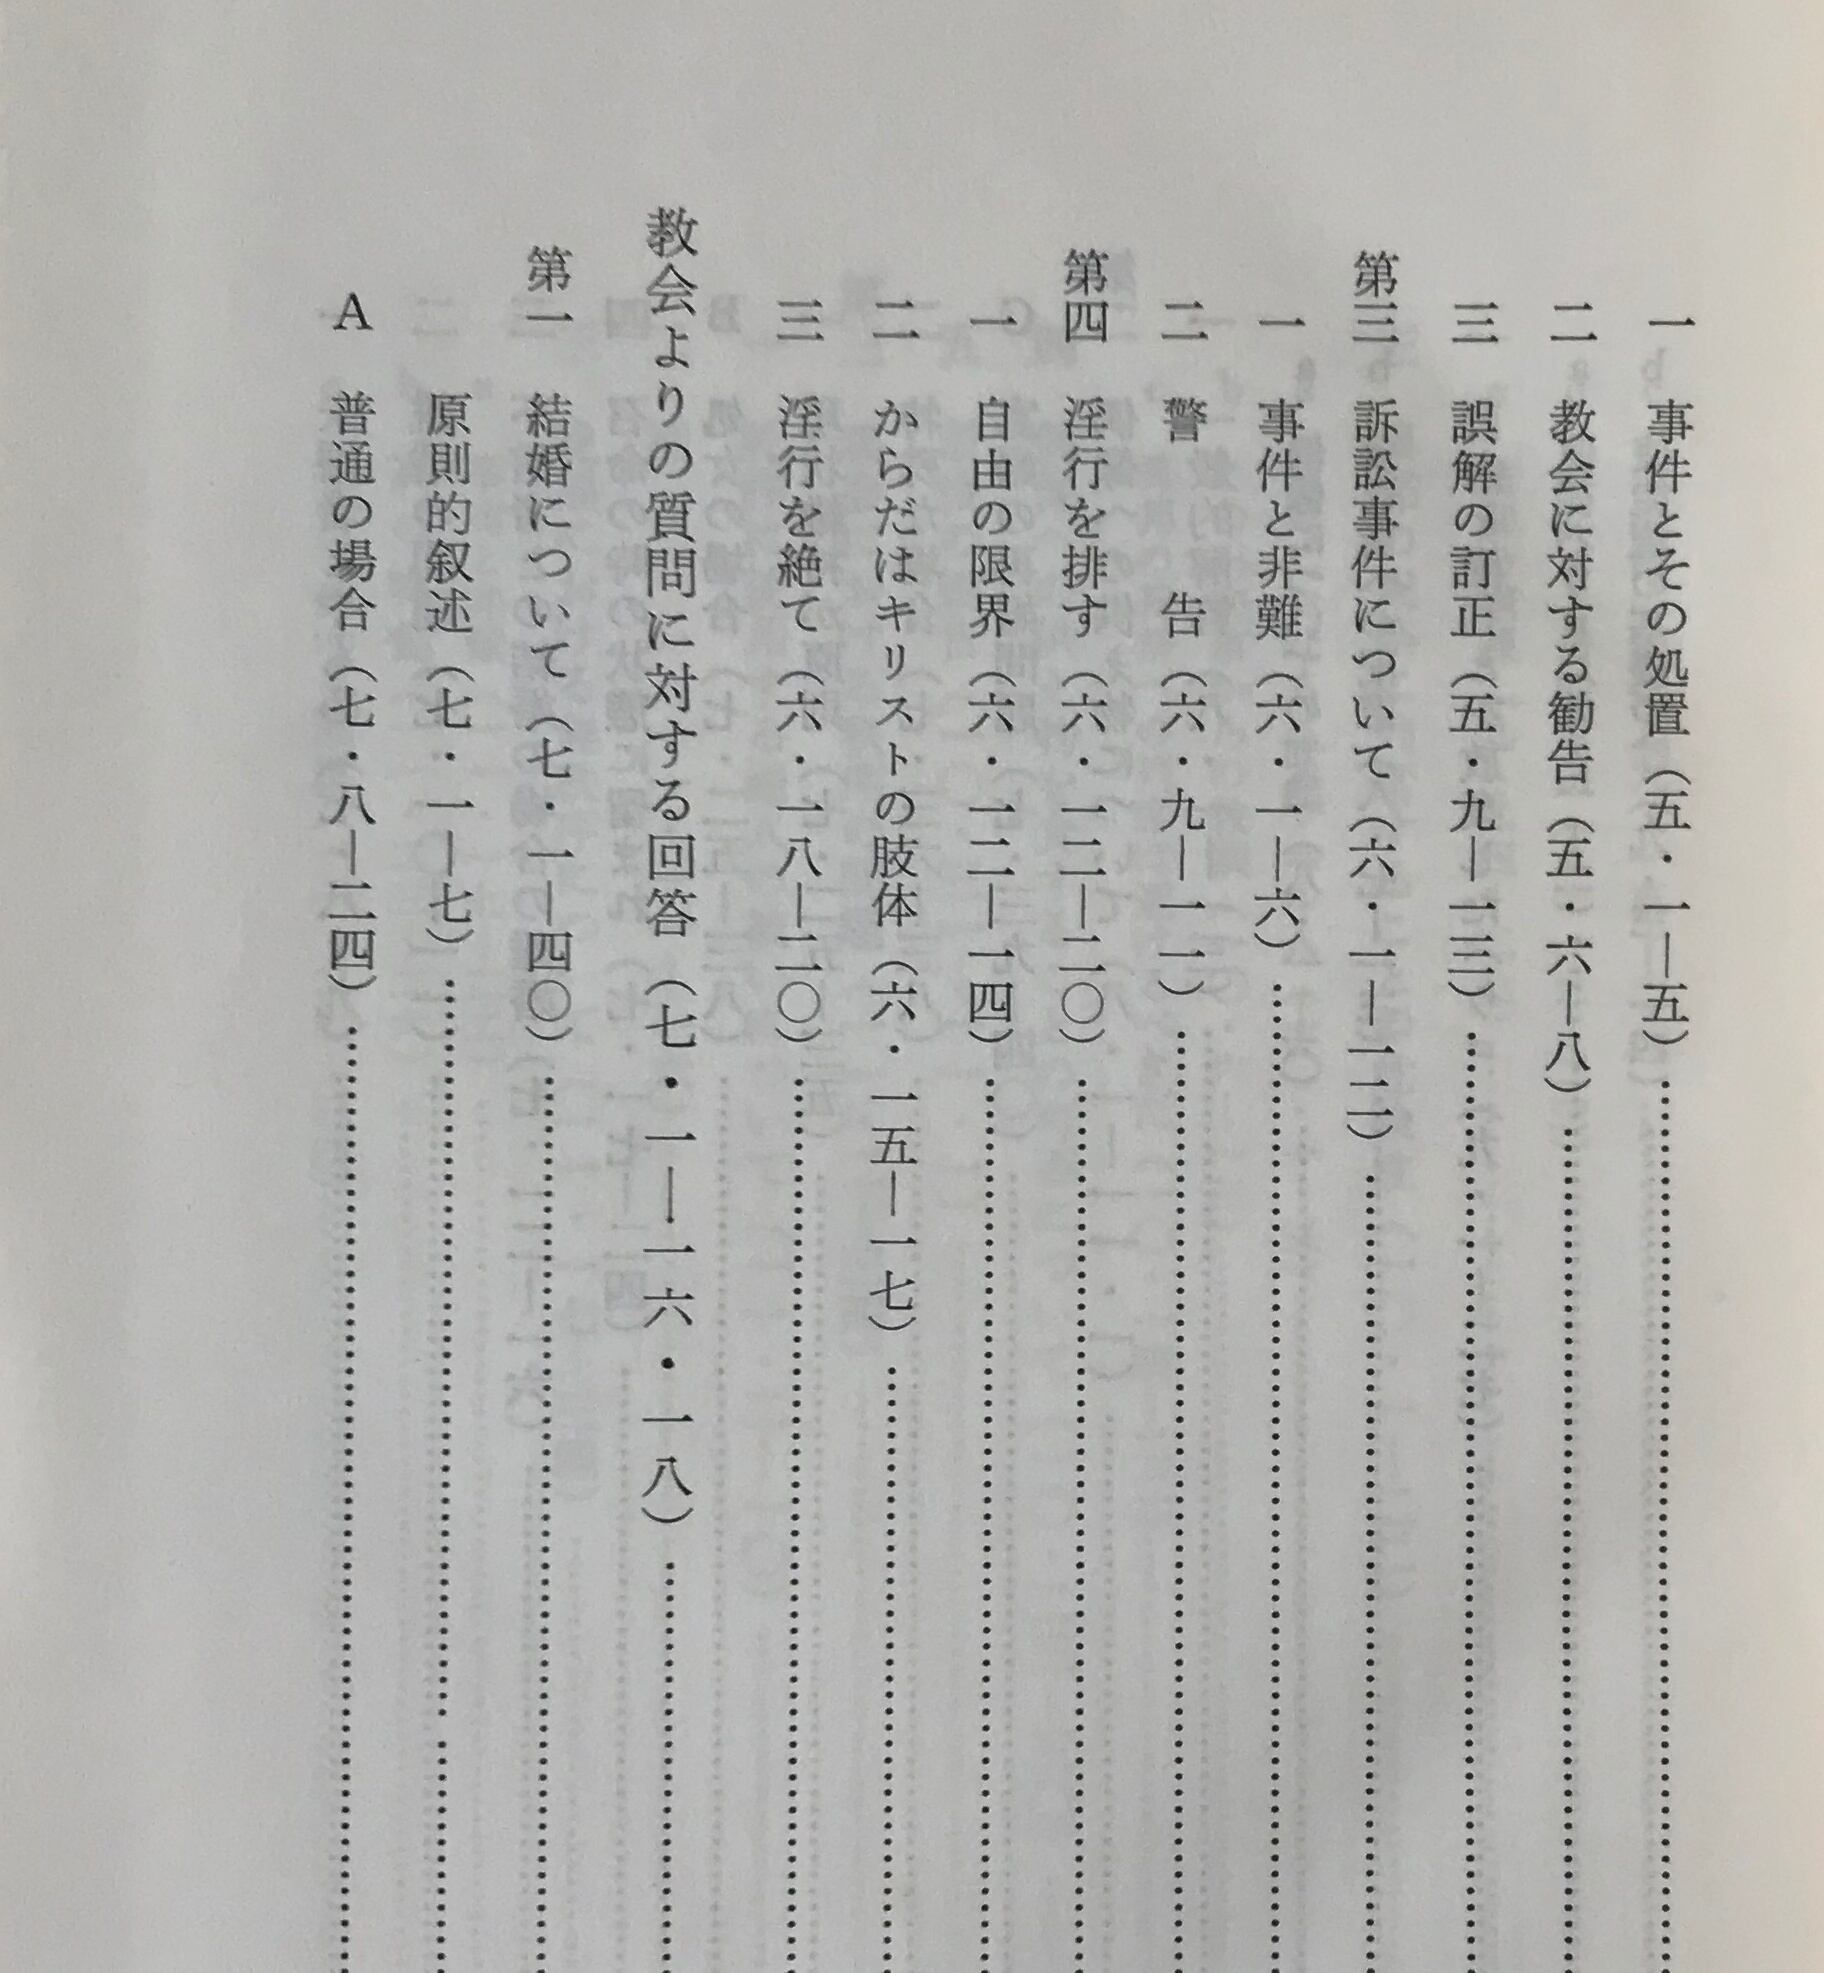 一　事件とその処置（五・一―五）
二　教会に対する勧告（五・六―八）
三　誤解の訂正（五・九―一三）
第三　訴訟事件について（六・一―一一）
一　事件と非難（六・一―六）
二　警　　告（六・九―一一）
第四　淫行を排す（六・一二―二〇）
一　自由の限界（六・一二―一四）
二　からだはキリストの肢体（六・一五―一七）
三　淫行を絶て（六・一八―二〇）
教会よりの質問に対する回答（七・一―一六・一八）
第一　結婚について（七・一―四〇）
原則的叙述（七・一―七）
A　普通の場合（七・八―二四）